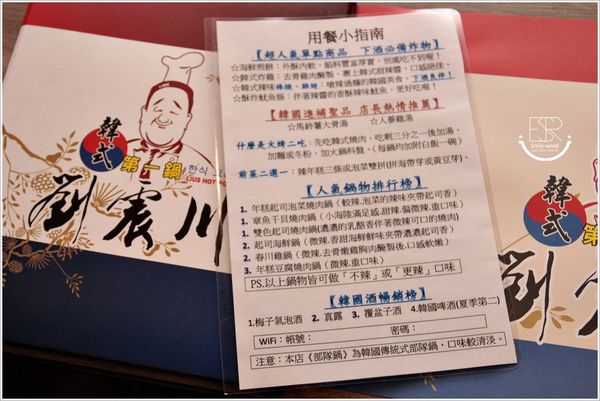 用餐小指南
【超人氣單點商品 下酒必備炸物】
☆海鮮煎餅：外酥內軟，餡料豐富厚實，別處吃不到喔！
☆韓式炸雞：去骨雞肉醃製，裹上韓式甜辣醬，口感絕佳。
☆韓式辣味 ：嗆辣過癮的韓國美食，下酒良伴！
☆酥炸魷魚條：伴著辣醬的香酥辣味魷魚，更好吃喔！
【韓國進補聖品 店長熱情推薦】
☆馬鈴薯大骨湯 ☆人參雞湯
什麼是火烤二吃：先吃燒烤肉，吃剩三分之一後加湯，
加麵或冬粉，加火鍋料盤。（每鍋均加附白飯一碗）
前菜二選一：辣年糕三條或泡菜雙拼(拼海帶芽或黃豆芽)。
【人氣鍋物排行榜】
1. 年糕起司泡菜燒肉鍋（較辣.泡菜的辣味夾帶起司香）
1. 章魚干貝燒肉鍋（小海陸滿足感.甜辣.偏微辣.重口味）
1. 雙色起司燒肉鍋(濃濃的乳酪香伴著微辣可口的燒肉)
2. 起司海鮮鍋（微辣.香甜海鮮鮮味夾帶濃濃起司香）
2. 春川雞鍋（微辣.去骨嫩雞胸肉醃製後.口感軟嫩）
3. 年糕豆腐燒肉鍋（微辣.重口味）
PS.以上鍋物皆可做「不辣」或「更辣」口味
【韓國酒暢銷榜】
1.梅子氣泡酒 2. 真露 3. 覆盆子酒 4.韓國啤酒(夏季第二)
WiFi：帳號： 密碼：
注意：本店《部隊鍋》為韓國傳統式部隊鍋，口味較清淡。
韓式
第一鍋
한식
LIUS HOT PO
劉震川
韓式
劉震
ER
Emily world